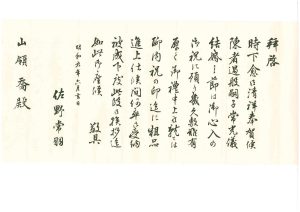 拝啓
時下愈々清祥奉賀候
陳者過般嗣子常光儀
結婚之節は御心入の
御祝に預り幾久敷難有
厚く御禮申上候就ては
御内祝の印迄に粗品
進上仕候間御受納
被成下度此段御挨拶迄
如此御座候
敬具
昭和九年六月吉日
佐野常羽
山領 殿